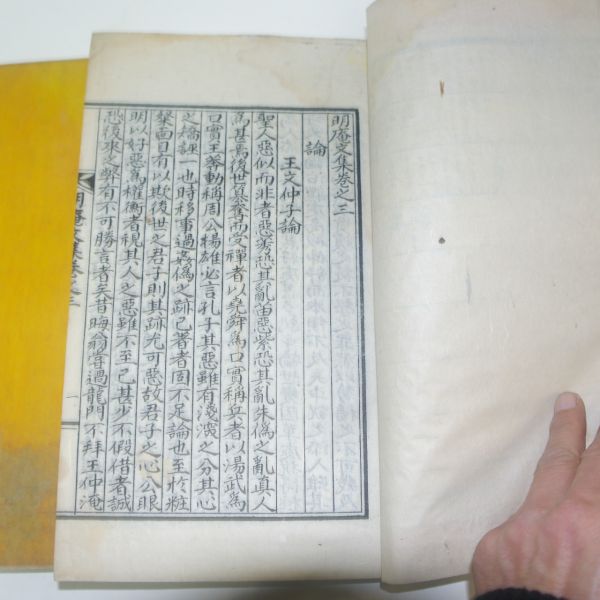 明庵文集卷之三
論
王文仲子論
聖人惡似而非者惡莠恐其亂苗惡紫恐其亂朱偽之亂真人
為甚焉後世簒奪而受禪者以堯舜為口實稱兵者以湯武為
口實王莽動稱周公楊雄必言孔子其惡雖有淺深之分其心
之矯誣一也時移事過為偽之跡已著者固不足論也至於粧
撆面目有以欺後世之君子則其跡尤可惡故君子之心公眼
明以好惡為權衡者視其人之惡雖不至已甚少不假借者誠
恐後來之弊有不可勝言者矣昔晦翁嘗過龍門不拜王仲淹
明庵文集卷之三
一